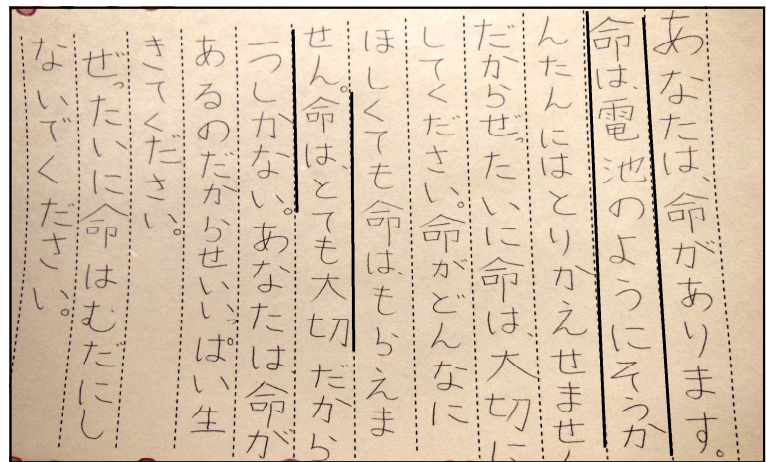 あなたは、命があります。
命は、電池のようにそうか
んたんにはとりかえせません
だからぜったいに命は、大切に
してください。命がどんなに
ほしくても命は、もらえま
せん。命は、とても大切だから
つしかない。あなたは命が
あるのだからせいいっぱい生
きてください。
ぜったいに命はむだにし
ないでください。